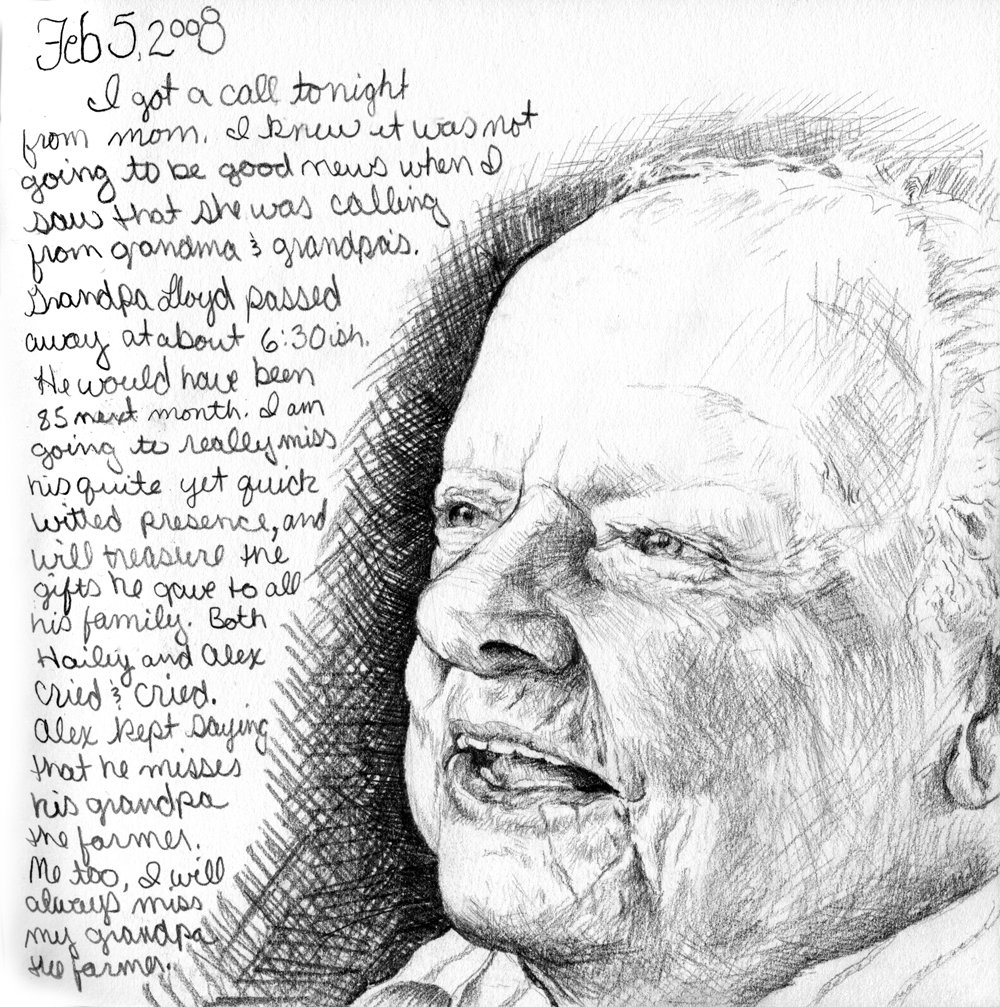 Feb 5, 2008
I got a call tonight
from mom. I knew it was not
going to be good news when I
saw that she was calling
from grandma & grandpa's.
Grandpa Lloyd passed
away at about 6:30ish.
He would have been
85 next month. I am
going to really miss
his quite yet quick
witted presence, and
will treasure the
gifts he gave to all
his family. Both
Hailey and Alex
cried & cried.
Alex kept saying
that he misses
his grandpa
the farmer.
Me too, I will
always miss
my grandpa
the farmer.